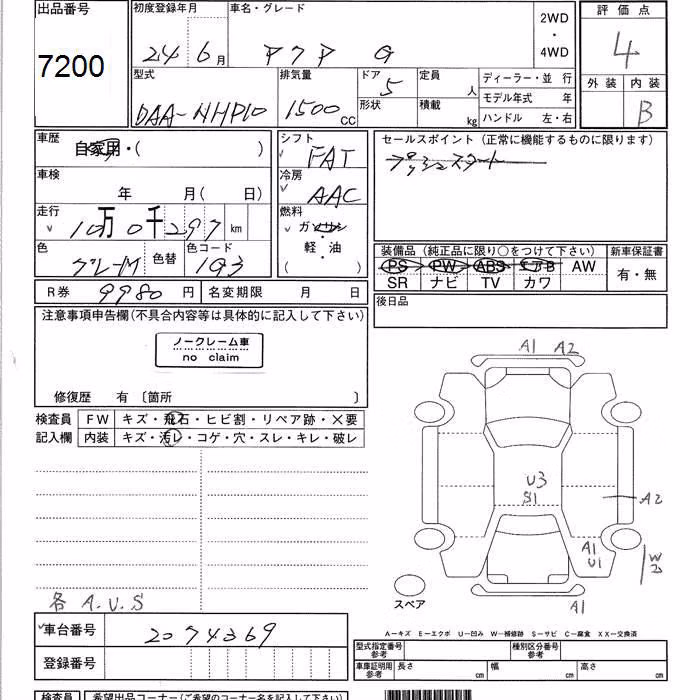 出品番号
7200
初度登録年月
24 6月
車名・グレード
アクア G
2WD
・
4WD
評価点
4
型式
DAA-NHP10
排気量
1500 CC
ドア
5
形状
定員
人
積載
kg
ディーラー・並行
モデル年式 年
ハンドル 左・右
外装 内装
B
車歴
自家用・( )
車検
年 月( 日)
走行
10万0千297 km
色
グレーM
色替
色コード
1G3
シフト
FAT
冷房
AAC
燃料
ガソリン
・
軽・油
( )
セールスポイント(正常に機能するものに限ります)
プッシュスタート
装備品(純正品に限り○をつけて下さい)
PS PW ABS エアB AW
SR ナビ TV カワ
新車保証書
有・無
R券 9980 円
名変期限 月 日
後日品
注意事項申告欄(不具合内容等は具体的に記入して下さい)
ノークレーム車
no claim
修復歴 有 〔箇所 〕
検査員
記入欄
FW キズ・飛石・ヒビ割・リペア跡・X要
内装 キズ・汚レ・コゲ・穴・スレ・キレ・破レ
各 A.U.S
A1 A2
U3
S1
A2
A1
U1
W
A1
スペア
車台番号 2074369
登録番号
A―キズ E―エクボ U―凹み W―補修跡 S―サビ C―腐食 XX―交換済
型式指定番号
参考
種別区分番号
参考
車庫証明用
参考
長さ cm 幅 cm 高さ cm
検査員
希望出品コーナー(ご希望のコーナー名を記入して下さい)